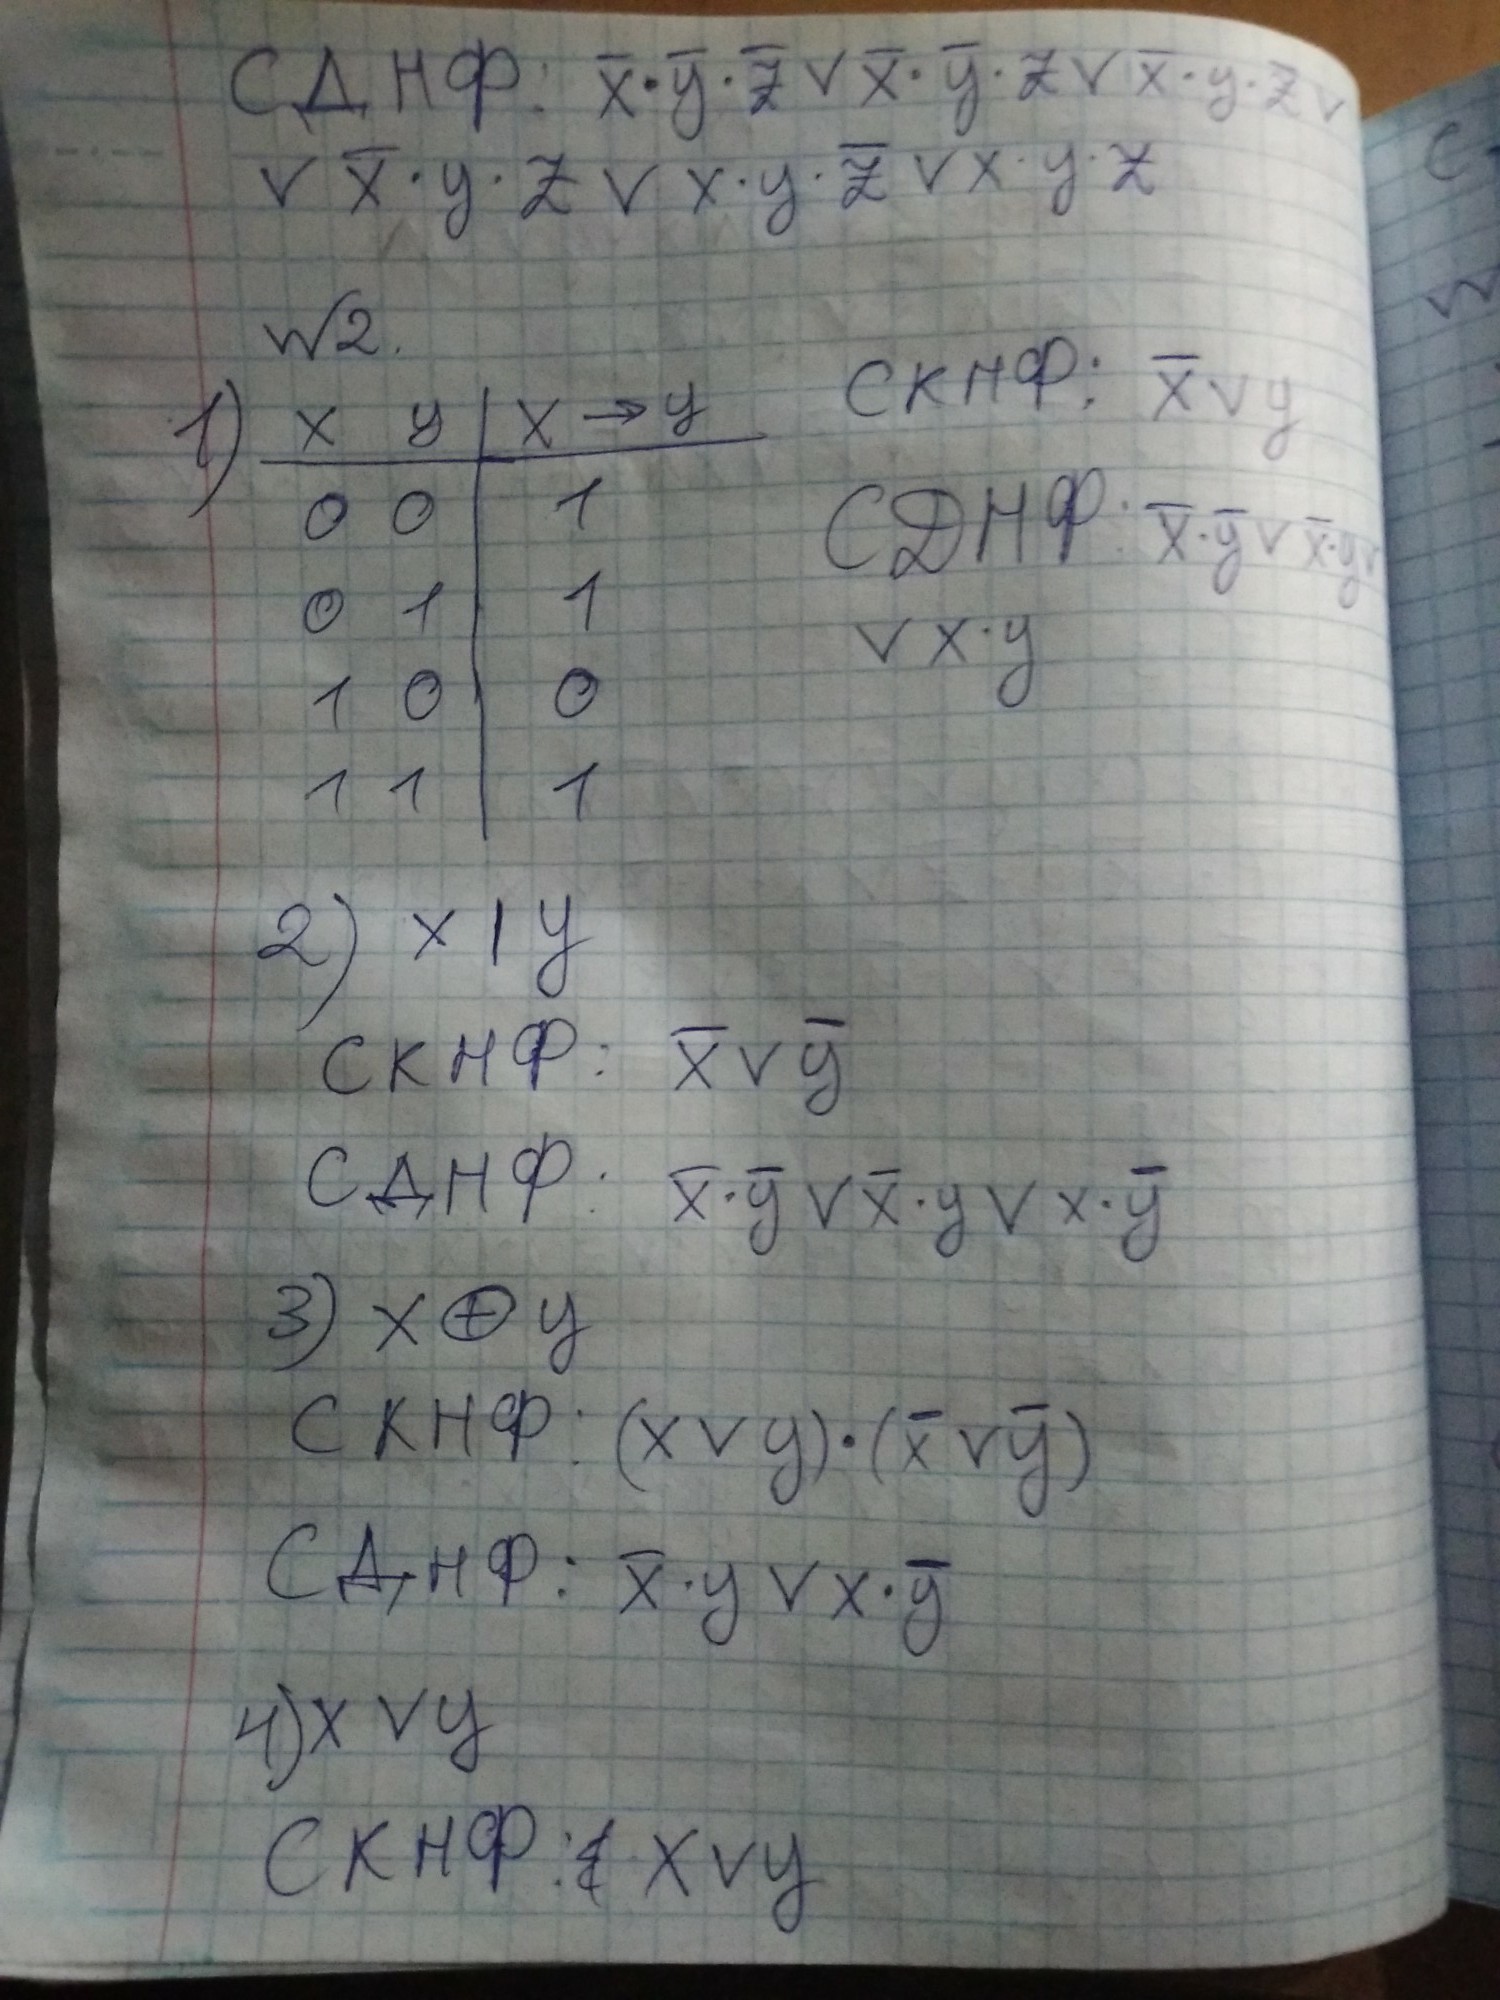 СДНФ: x̅·y̅·z̅ ∨ x̅·y̅·z ∨ x̅·y·z̅ ∨
∨ x̅·y·z ∨ x·y·z̅ ∨ x·y·z
№2.
1) x y | x → y
0 0 | 1
0 1 | 1
1 0 | 0
1 1 | 1
СКНФ: x̅ ∨ y
СДНФ: x̅·y̅ ∨ x̅·y ∨
∨ x·y
2) x | y
СКНФ: x̅ ∨ y̅
СДНФ: x̅·y̅ ∨ x̅·y ∨ x·y̅
3) x ⊕ y
СКНФ: (x ∨ y)·(x̅ ∨ y̅)
СДНФ: x̅·y ∨ x·y̅
4) x ∨ y
СКНФ: x ∨ y